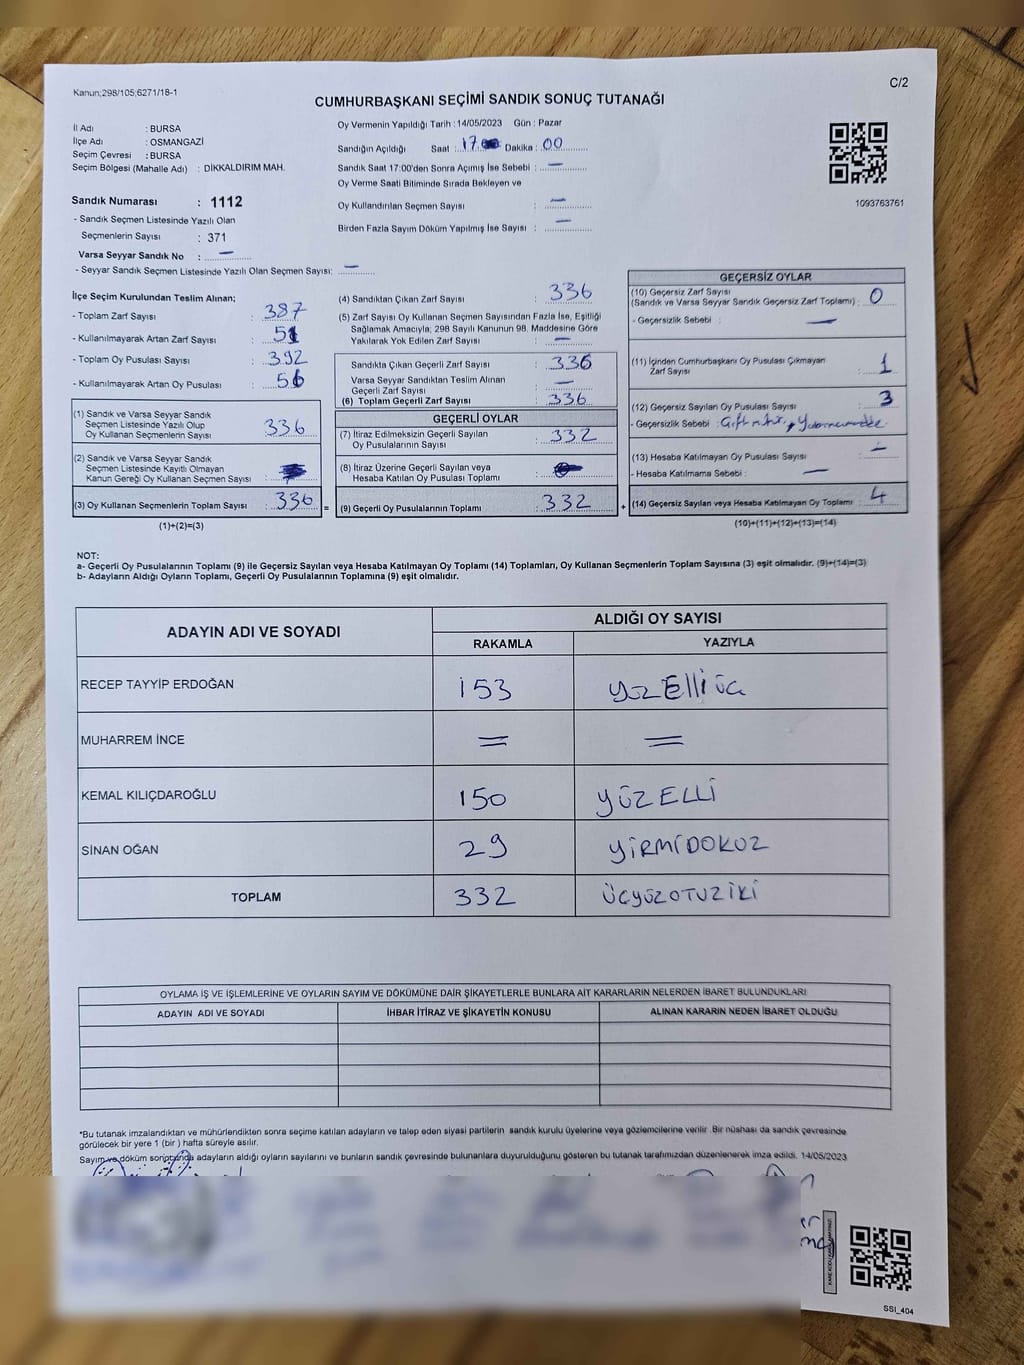 Kanun;298/105;6271/18-1
C/2
CUMHURBAŞKANI SEÇİMİ SANDIK SONUÇ TUTANAĞI
İl Adı : BURSA
İlçe Adı : OSMANGAZİ
Seçim Çevresi : BURSA
Seçim Bölgesi (Mahalle Adı) : DİKKALDIRIM MAH.
Sandık Numarası : 1112
- Sandık Seçmen Listesinde Yazılı Olan
Seçmenlerin Sayısı : 371
Varsa Seyyar Sandık No : —
- Seyyar Sandık Seçmen Listesinde Yazılı Olan Seçmen Sayısı: —
Oy Vermenin Yapıldığı Tarih : 14/05/2023 Gün : Pazar
Sandığın Açıldığı Saat : 17 Dakika : 00
Sandık Saat 17:00'den Sonra Açımış İse Sebebi : —
Oy Verme Saati Bitiminde Sırada Bekleyen ve
Oy Kullandırılan Seçmen Sayısı : —
Birden Fazla Sayım Döküm Yapılmış İse Sayısı : —
1093763761
İlçe Seçim Kurulundan Teslim Alınan;
- Toplam Zarf Sayısı : 387
- Kullanılmayarak Artan Zarf Sayısı : 51
- Toplam Oy Pusulası Sayısı : 392
- Kullanılmayarak Artan Oy Pusulası : 56
(1) Sandık ve Varsa Seyyar Sandık
Seçmen Listesinde Yazılı Olup
Oy Kullanan Seçmenlerin Sayısı : 336
(2) Sandık ve Varsa Seyyar Sandık
Seçmen Listesinde Kayıtlı Olmayan
Kanun Gereği Oy Kullanan Seçmen Sayısı :
(3) Oy Kullanan Seçmenlerin Toplam Sayısı : 336 =
(1)+(2)=(3)
(4) Sandıktan Çıkan Zarf Sayısı : 336
(5) Zarf Sayısı Oy Kullanan Seçmen Sayısından Fazla İse, Eşitliği
Sağlamak Amacıyla; 298 Sayılı Kanunun 98. Maddesine Göre
Yakılarak Yok Edilen Zarf Sayısı : —
Sandıkta Çıkan Geçerli Zarf Sayısı : 336
Varsa Seyyar Sandıktan Teslim Alınan
Geçerli Zarf Sayısı : —
(6) Toplam Geçerli Zarf Sayısı : 336
GEÇERLİ OYLAR
(7) İtiraz Edilmeksizin Geçerli Sayılan
Oy Pusulasının Sayısı : 332
(8) İtiraz Üzerine Geçerli Sayılan veya
Hesaba Katılan Oy Pusulası Toplamı :
(9) Geçerli Oy Pusulalarının Toplamı : 332 +
GEÇERSİZ OYLAR
(10) Geçersiz Zarf Sayısı
(Sandık ve Varsa Seyyar Sandık Geçersiz Zarf Toplamı) : 0
- Geçersizlik Sebebi : —
(11) İçinden Cumhurbaşkanı Oy Pusulası Çıkmayan
Zarf Sayısı : 1
(12) Geçersiz Sayılan Oy Pusulası Sayısı : 3
- Geçersizlik Sebebi :
(13) Hesaba Katılmayan Oy Pusulası Sayısı : —
- Hesaba Katılmama Sebebi : —
(14) Geçersiz Sayılan veya Hesaba Katılmayan Oy Toplamı : 4
(10)+(11)+(12)+(13)=(14)
NOT:
a- Geçerli Oy Pusulalarının Toplamı (9) ile Geçersiz Sayılan veya Hesaba Katılmayan Oy Toplamı (14) Toplamları, Oy Kullanan Seçmenlerin Toplam Sayısına (3) eşit olmalıdır. (9)+(14)=(3)
b- Adayların Aldığı Oyların Toplamı, Geçerli Oy Pusulalarının Toplamına (9) eşit olmalıdır.
ADAYIN ADI VE SOYADI ALDIĞI OY SAYISI
RAKAMLA YAZIYLA
RECEP TAYYİP ERDOĞAN 153 yüzElliüç
MUHARREM İNCE = =
KEMAL KILIÇDAROĞLU 150 YÜZELLİ
SİNAN OĞAN 29 YİRMİDOKUZ
TOPLAM 332 ÜÇYÜZOTUZİKİ
OYLAMA İŞ VE İŞLEMLERİNE VE OYLARIN SAYIM VE DÖKÜMÜNE DAİR ŞİKAYETLERLE BUNLARA AİT KARARLARIN NELERDEN İBARET BULUNDUKLARI
ADAYIN ADI VE SOYADI İHBAR İTİRAZ VE ŞİKAYETİN KONUSU ALINAN KARARIN NEDEN İBARET OLDUĞU
*Bu tutanak imzalandıktan ve mühürlendikten sonra seçime katılan adayların ve talep eden siyasi partilerin sandık kurulu üyelerine veya gözlemcilerine verilir. Bir nüshası da sandık çevresinde
görülecek bir yere 1 (bir ) hafta süreyle asılır.
Sayım ve döküm sonucunda adayların aldığı oyların sayılarını ve bunların sandık çevresinde bulunanlara duyurulduğunu gösteren bu tutanak tarafımızdan düzenlenerek imza edildi. 14/05/2023
SSI_404